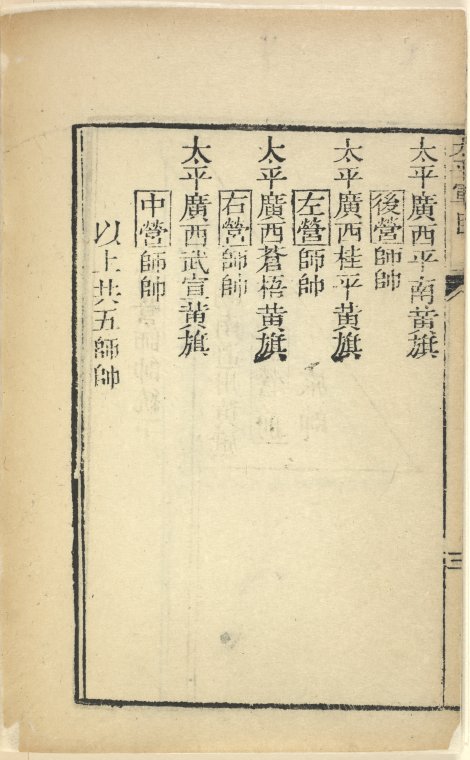 太平軍目
三
太平廣西平南黄旗
後營師帥
太平廣西桂平黄旗
左營師帥
太平廣西蒼梧黄旗
右營師帥
太平廣西武宣黄旗
中營師帥
以上共五師帥